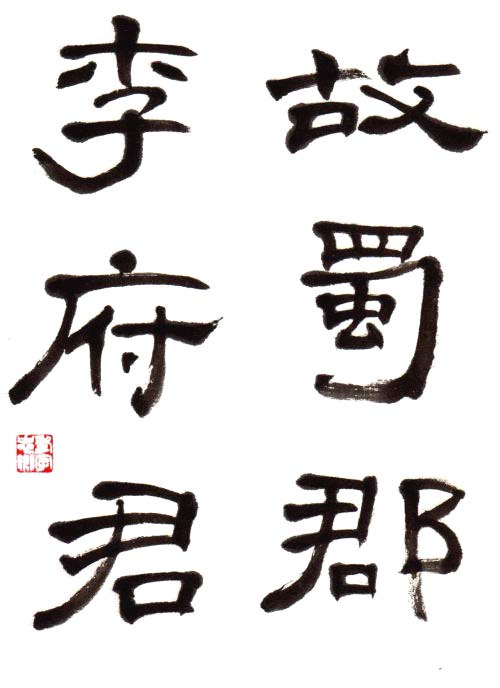 故蜀郡
李府君